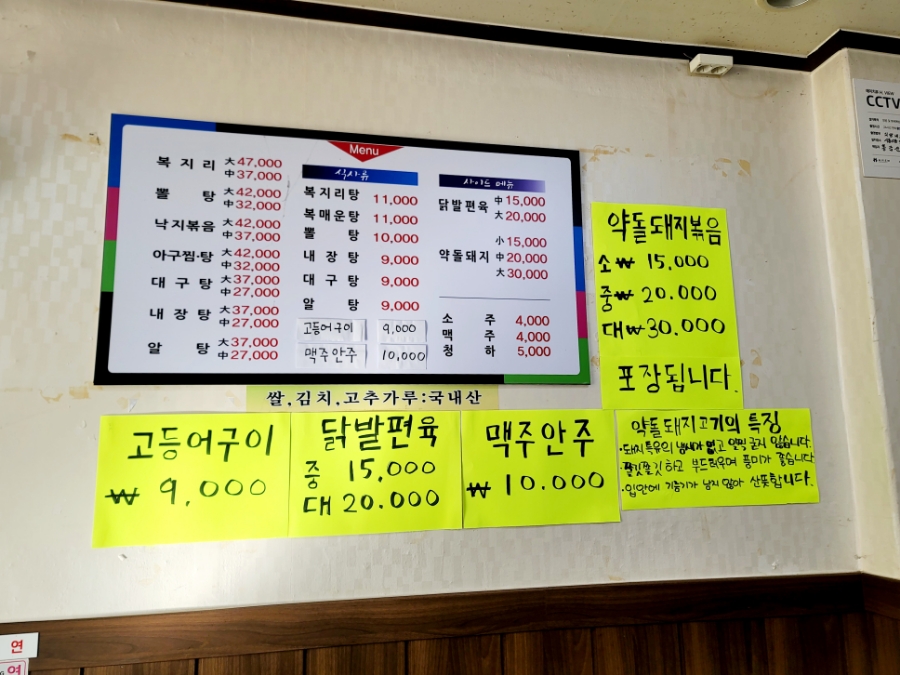 Menu
복지리 大 47,000
中 37,000
뽈탕 大 42,000
中 32,000
낙지볶음 大 42,000
中 37,000
아구찜·탕 大 42,000
中 32,000
대구탕 大 37,000
中 27,000
내장탕 大 37,000
中 27,000
알탕 大 37,000
中 27,000
식사류
복지리탕 11,000
복매운탕 11,000
뽈탕 10,000
내장탕 9,000
대구탕 9,000
알탕 9,000
고등어구이 9,000
맥주안주 10,000
사이드 메뉴
닭발편육 中 15,000
大 20,000
小 15,000
약돌돼지 中 20,000
大 30,000
소주 4,000
맥주 4,000
청하 5,000
쌀,김치,고추가루:국내산
약돌돼지볶음
소 ₩ 15.000
중 ₩ 20.000
대 ₩ 30.000
포장됩니다.
고등어구이
₩ 9,000
닭발편육
중 15,000
대 20.000
맥주안주
₩ 10.000
약돌돼지고기의 특징
·돼지특유의 냄새가 없고 굳지 않습니다.
·쫄깃쫄깃하고 부드러우며 풍미가 좋습니다
·입안에 기름기가 남지 않아 산뜻합니다.
CCTV
연
연